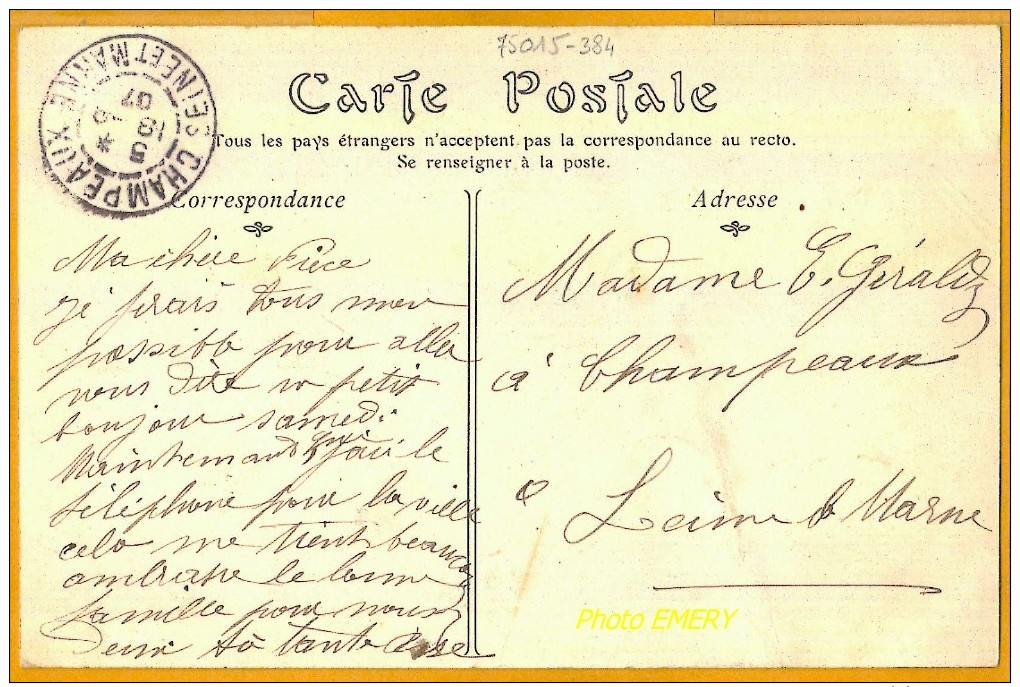 75015-384
Carte Postale
Tous les pays étrangers n'acceptent pas la correspondance au recto.
Se renseigner à la poste.
CHAMPEAUX SEINE ET MARNE
19 5
07
Correspondance
Ma chère Nièce
je ferais tous mon
possible pour aller
vous dire un petit
bonjour samedi
Maintenand que j'ai le
téléphone pour la ville
cela me tient beaucoup
ambrasse le bonne
famille pour nous
deux ta tante
Adresse
Madame E. Gérald
à Champeaux
Seine & Marne
Photo EMERY